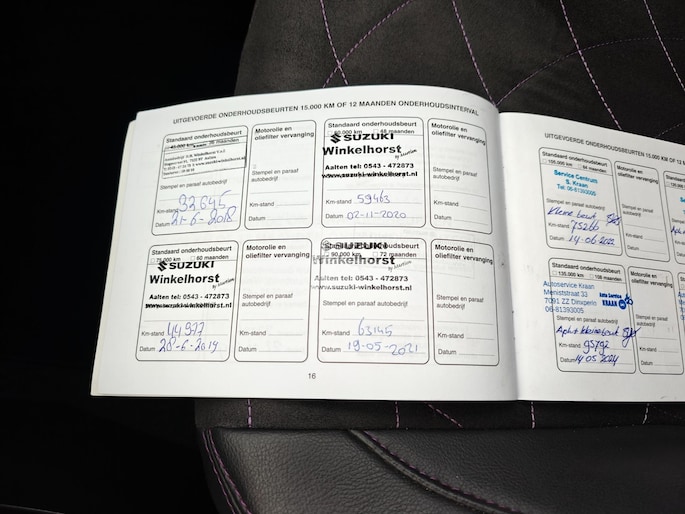 UITGEVOERDE ONDERHOUDSBEURTEN 15.000 KM OF 12 MAANDEN ONDERHOUDSINTERVAL
Standaard onderhoudsbeurt
36 maanden
Stempel en paraaf autobedrijf
Km-stand 32645
Datum 21-6-2018
Motorolie en
oliefilter vervanging
Stempel en paraaf
autobedrijf
Km-stand
Datum
Standaard onderhoudsbeurt
60.000 km 48 maanden
SUZUKI
Winkelhorst
Aalten tel: 0543 - 472873
www.suzuki-winkelhorst.nl
Km-stand 59463
Datum 02-11-2020
Motorolie en
oliefilter vervanging
Stempel en paraaf
autobedrijf
Km-stand
Datum
Standaard onderhoudsbeurt
75.000 km 60 maanden
SUZUKI
Winkelhorst
Aalten tel: 0543 - 472873
www.suzuki-winkelhorst.nl
Km-stand 44977
Datum 28-6-2019
Motorolie en
oliefilter vervanging
Stempel en paraaf
autobedrijf
Km-stand
Datum
Standaard onderhoudsbeurt
90.000 km 72 maanden
SUZUKI
Winkelhorst
Aalten tel: 0543 - 472873
www.suzuki-winkelhorst.nl
Km-stand 63145
Datum 19-05-2021
Motorolie en
oliefilter vervanging
Stempel en paraaf
autobedrijf
Km-stand
Datum
16
UITGEVOERDE ONDERHOUDSBEURTEN 15.000 KM OF 12
Standaard onderhoudsbeurt
84 maanden
Service Centrum
S. Kraan
Tel: 06-81393005
Stempel en paraaf autobedrijf
Kleine beurt
Km-stand 75266
Datum 14-06-2022
Motorolie en
oliefilter vervanging
Stempel en paraaf
autobedrijf
Km-stand
Datum
Standaard onderhoudsbeurt
135.000 km 108 maanden
Autoservice Kraan
Meniststraat 33
7091 ZZ Dinxperlo
06-81393005
Stempel en paraaf autobedrijf
Apk + kleine beurt
Km-stand 95792
Datum 14 05 2024
Motorolie en
oliefilter vervanging
Stempel en paraaf
autobedrijf
Km-stand
Datum